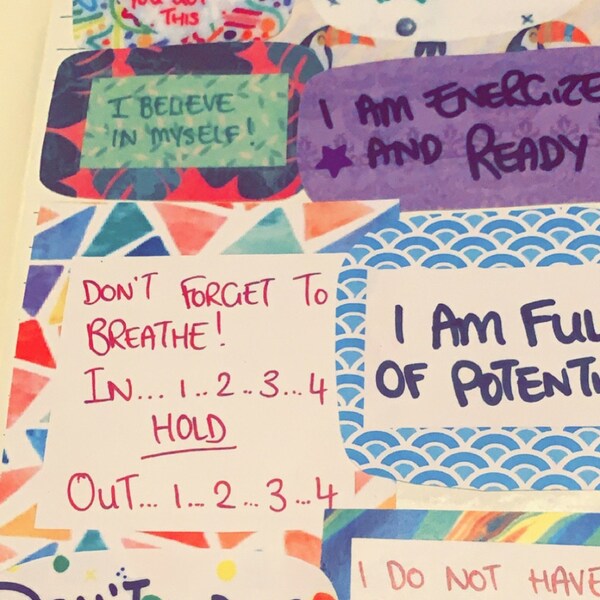 YOU GOT
THIS
I BELIEVE
IN MYSELF!
I AM ENERGIZE
AND READY
DON'T FORGET TO
BREATHE!
IN... 1..2..3...4
HOLD
OUT... 1...2...3...4
I AM FUL
OF POTENTI
DON'T
I DO NOT HAVE